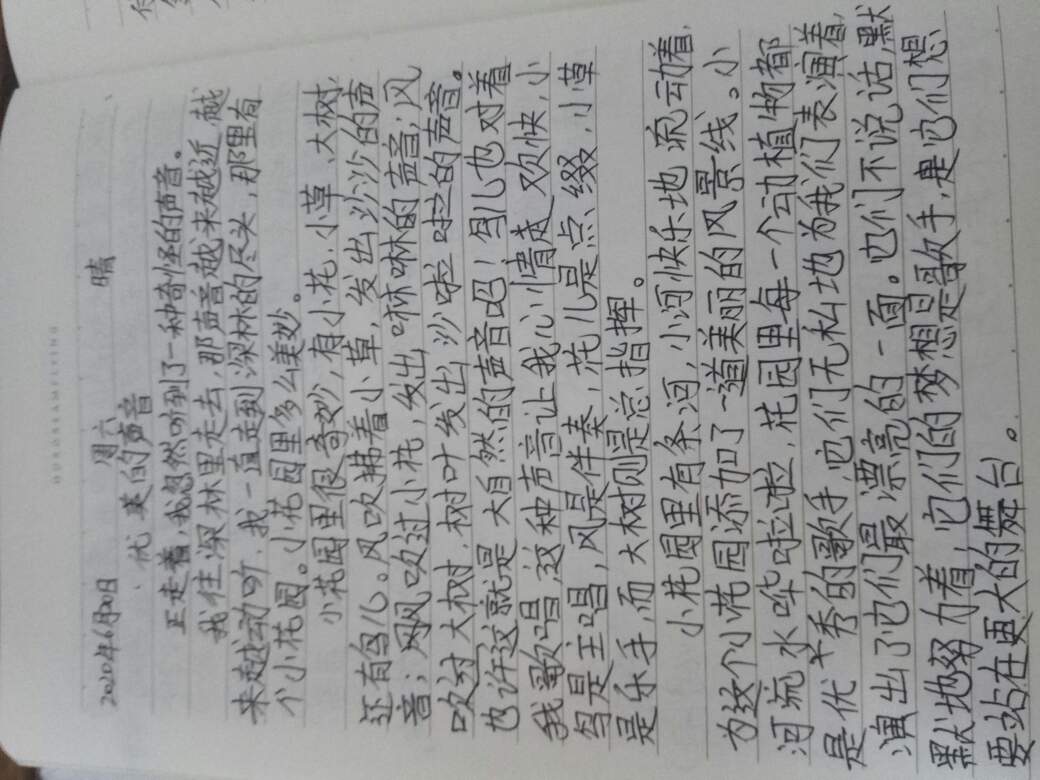 2020年6月20日 周六 晴
优美的声音
正走着,我忽然听到了一种奇怪的声音。
我往深林里走去,那声音越来越近,越
来越动听,我一直走到深林的尽头,那里有
个小花园。小花园里多么美妙。
小花园里很奇妙,有小花,小草、大树,
还有鸟儿。风吹拂着小草,发出沙沙的声
音;风吹过小花,发出咻咻的声音;风
吹过大树,树叶发出沙啦啦的声音。
也许这就是大自然的声音吧!鸟儿也对着
我歌唱,这种声音让我心情走欢快,小
鸟是主唱,风是伴奏,花儿是点缀,小草
是乐手,而大树则是总指挥。
小花园里有条河,小河快乐地流动着,
为这个小花园添加了一道美丽的风景线。小
河流水哗啦啦,花园里每一个动植物都
是优秀的歌手,它们无私地为我们表演着,
演出了它们最漂亮的一面。它们不说话,默
默地努力着,它们的梦想是歌手,是它们想
要站在更大的舞台。